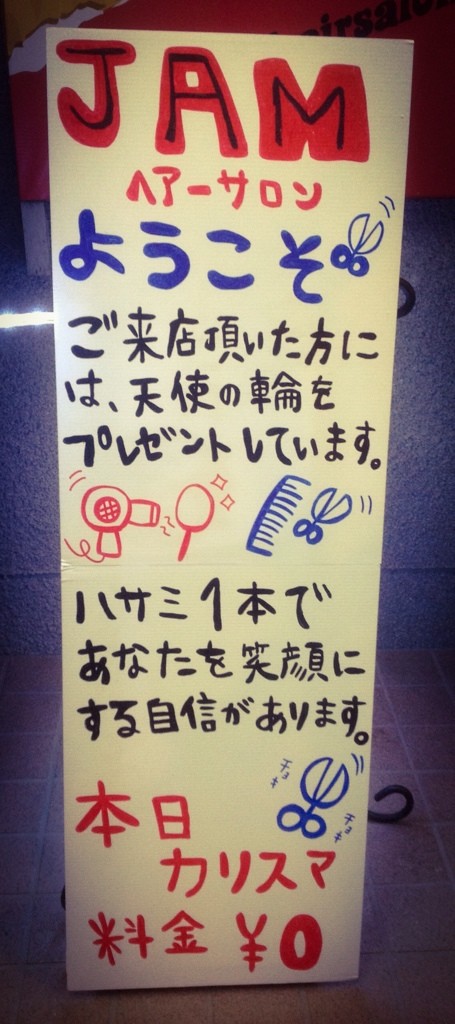 hairsalon
JAM
ヘアーサロン
ようこそ
ご来店頂いた方に
は、天使の輪を
プレゼントしています。
ハサミ1本で
あなたを笑顔に
する自信があります。
チョキ
チョキ
本日
カリスマ
料金 ¥0